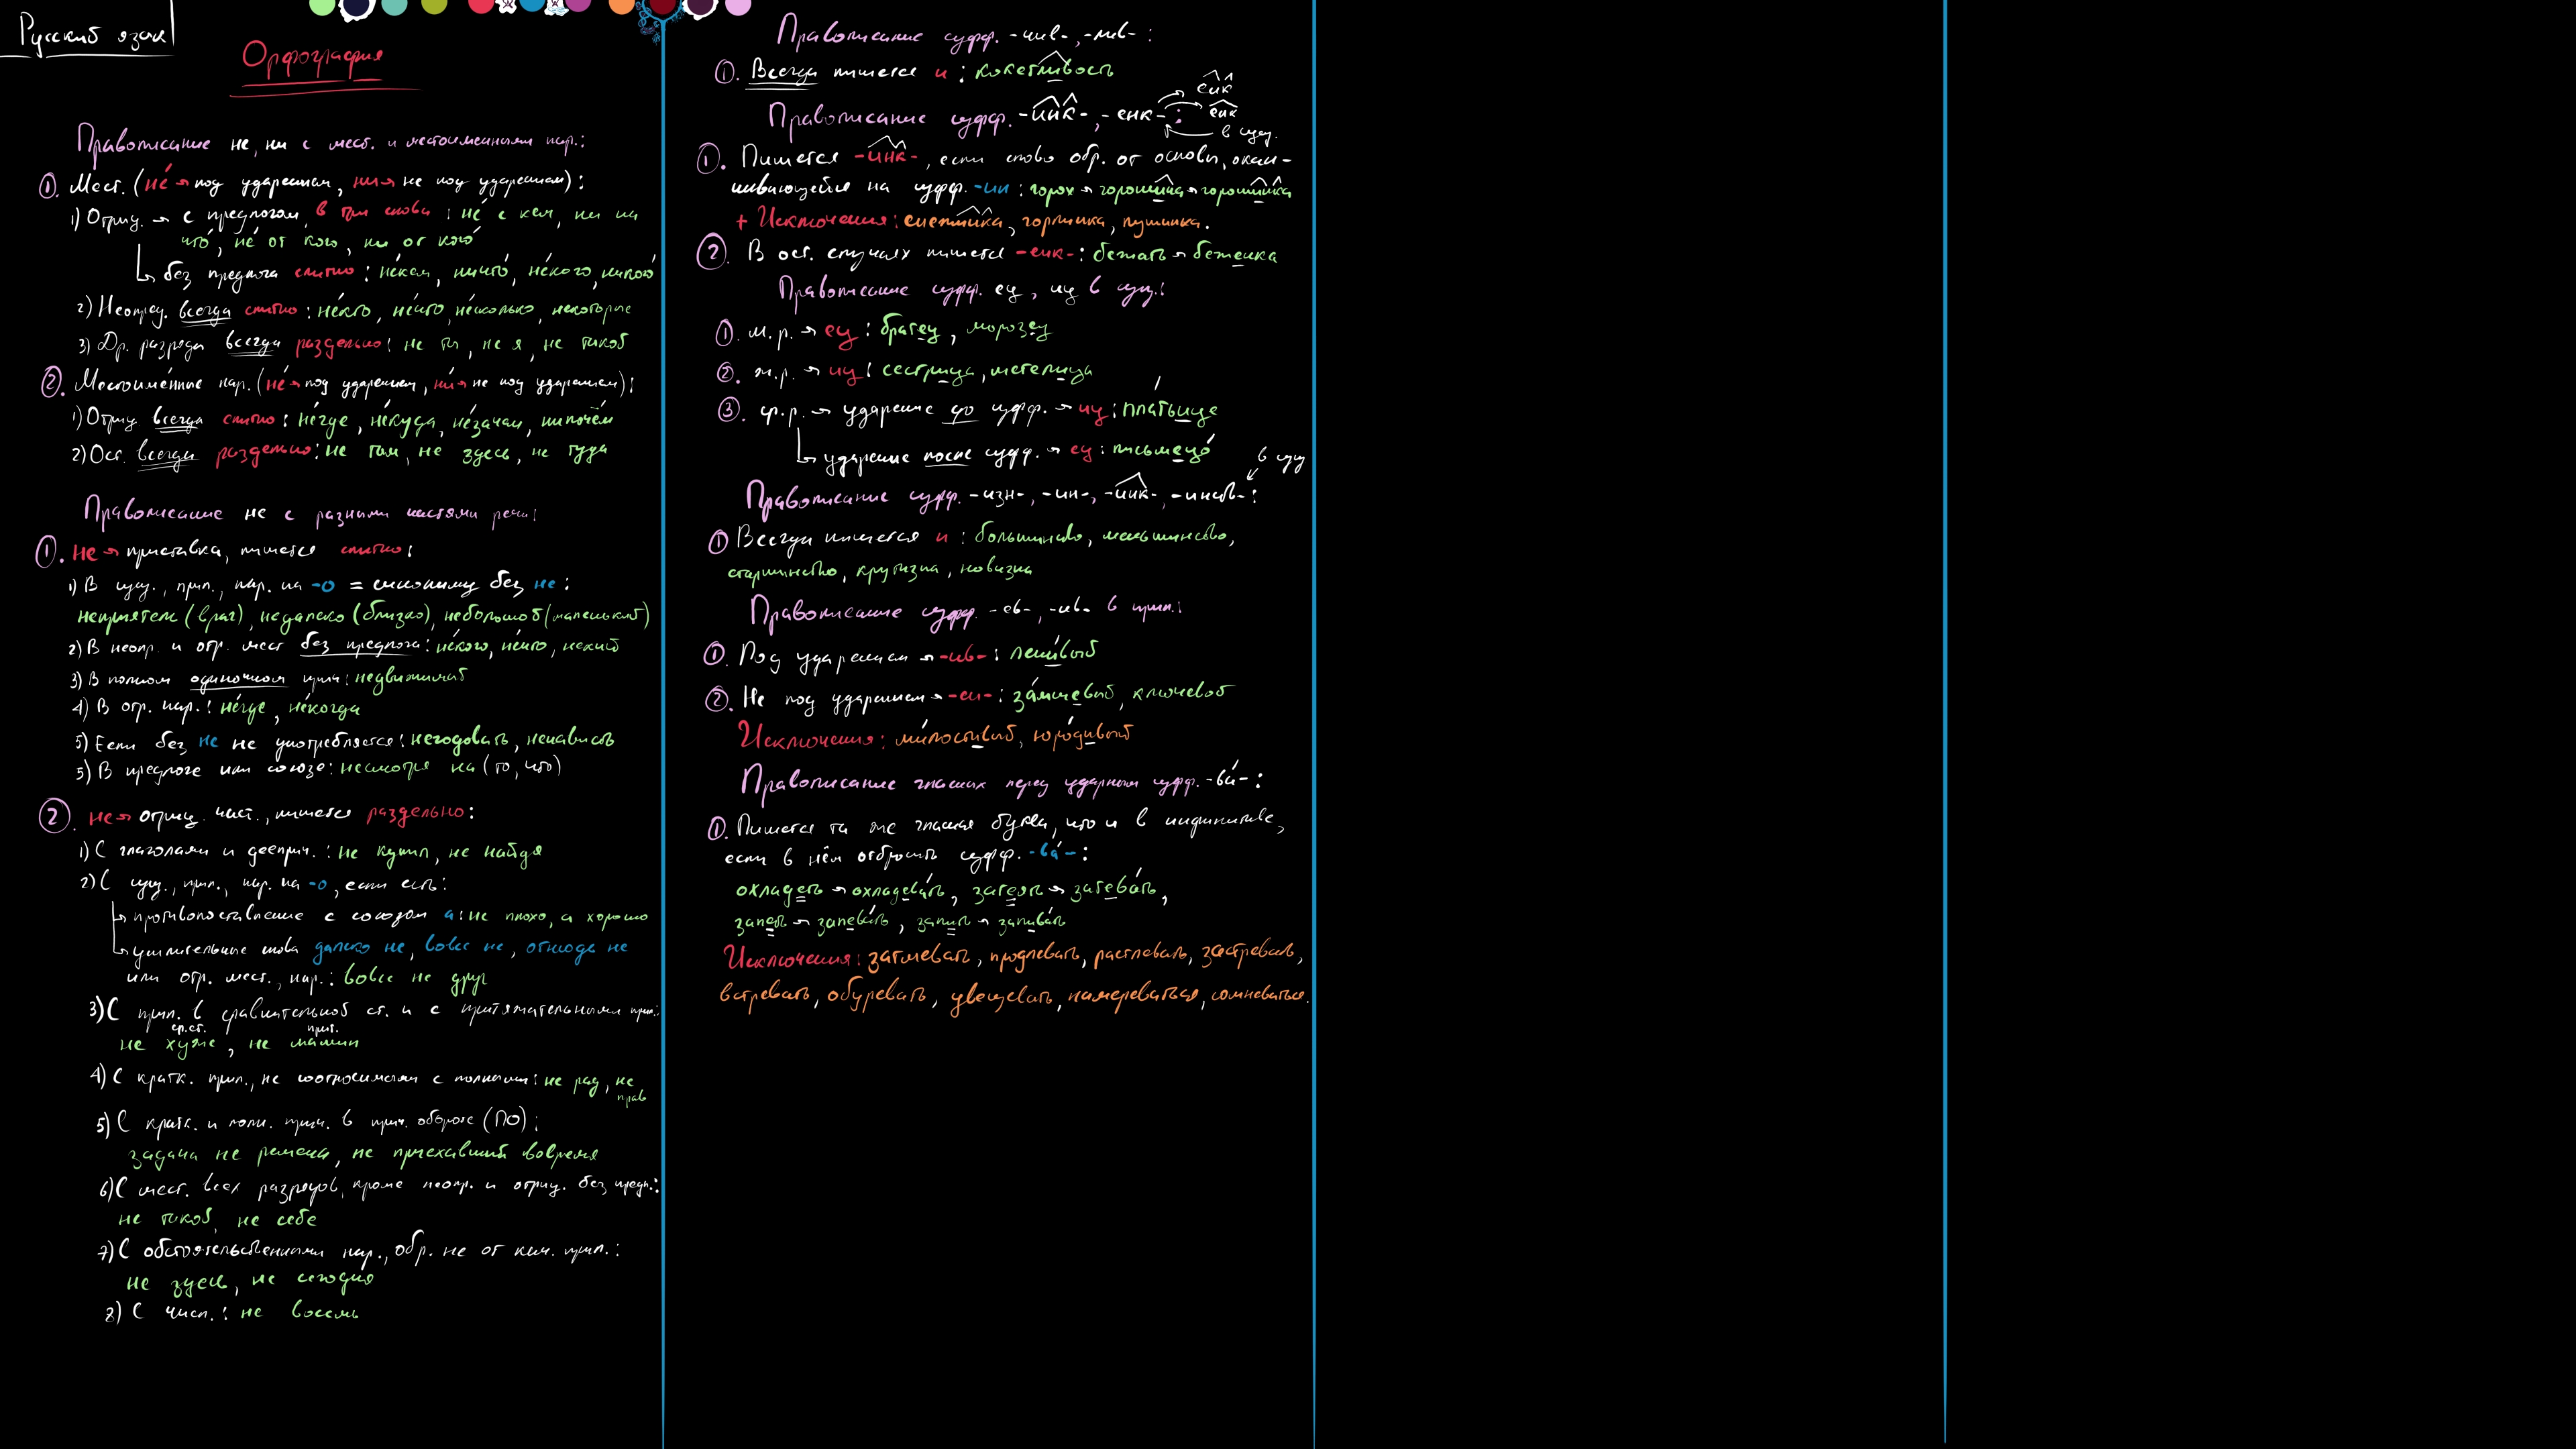 Русский язык
Орфография
Правописание не, ни с мест. и местоименными нар.:
1. Мест. (не́ → под ударением, ни → не под ударением):
1) Отриц. → с предлогом в три слова: не́ с кем, ни на
что́, не́ от кого, ни от кого́
без предлога слитно: не́кем, ничто́, не́кого, никого́
2) Неопред. всегда слитно: не́кто, не́что, не́сколько, некоторые
3) Др. разряда всегда раздельно: не ты, не я, не такой
2. Местоимённые нар. (не́ → под ударением, ни → не под ударением):
1) Отриц. всегда слитно: не́где, не́куда, не́зачем, нипочём
2) Ост. всегда раздельно: не там, не здесь, не туда
Правописание не с разными частями речи:
1. не → приставка, пишется слитно:
1) В сущ., прил., нар. на -о = синониму без не:
неприятель (враг), недалеко (близко), небольшой (маленький)
2) В неопр. и отр. мест без предлога: не́кого, не́что, некий
3) В полном одиночном прич: недвижимый
4) В отр. нар.: не́где, не́когда
5) Если без не не употребляется: негодовать, ненависть
5) В предлоге или союзе: несмотря на (то, что)
2. не → отриц. част., пишется раздельно:
1) С глаголами и дееприч.: не купил, не найдя
2) С сущ., прил., нар. на -о, если есть:
противопоставление с союзом а: не плохо, а хорошо
усилительные слова далеко не, вовсе не, отнюдь не
или отр. мест., нар.: вовсе не друг
3) С прил. в сравнительной ст. и с притяжательными прил.:
ср.ст. прит.
не хуже, не мамин
4) С кратк. прил., не соотносимыми с полными: не рад, не
прав
5) С кратк. и полн. прич. в прич. обороте (ПО):
задача не решена, не приехавший вовремя
6) С мест. всех разрядов, кроме неопр. и отриц. без предл.:
не такой, не себе
7) С обстоятельственными нар., обр. не от кач. прил.:
не здесь, не сегодня
8) С числ.: не восемь
Правописание суфф. -чив-, -лив-:
1. Всегда пишется и: кокетливость
Правописание суфф. -инк-, -енк-:
енк
енк
в сущ.
1. Пишется -инк-, если слово обр. от основы, окан-
чивающейся на суфф. -ин: горох → горошина → горошинка
+ Исключения: снежинка, горлинка, пушинка.
2. В ост. случаях пишется -енк-: бежать → беженка
Правописание суфф. ец, иц в сущ.:
1. м.р. → ец: братец, морозец
2. ж.р. → иц: сестрица, метелица
3. ср.р. → ударение до суфф. → иц: платьице
ударение после суфф. → ец: письмецо́
в сущ
Правописание суфф. -изн-, -ин-, -инк-, -инств-:
1 Всегда пишется и: большинство, меньшинство,
старшинство, крутизна, новизна
Правописание суфф. -ев-, -ив- в прил.:
1. Под ударением → -ив-: лени́вый
2. Не под ударением → -еи-: за́мшевый, ключевой
Исключения: ми́лостивый, юро́дивый
Правописание гласных перед ударным суфф. -ва́-:
1. Пишется та же гласная буква, что и в инфинитиве,
если в нём отбросить суфф. -ва́-:
охладеть → охладева́ть, затеять → затева́ть,
запеть → запева́ть, запить → запива́ть
Исключения: затмевать, продлевать, растлевать, застревать,
встревать, обуревать, увещевать, намереваться, сомневаться.